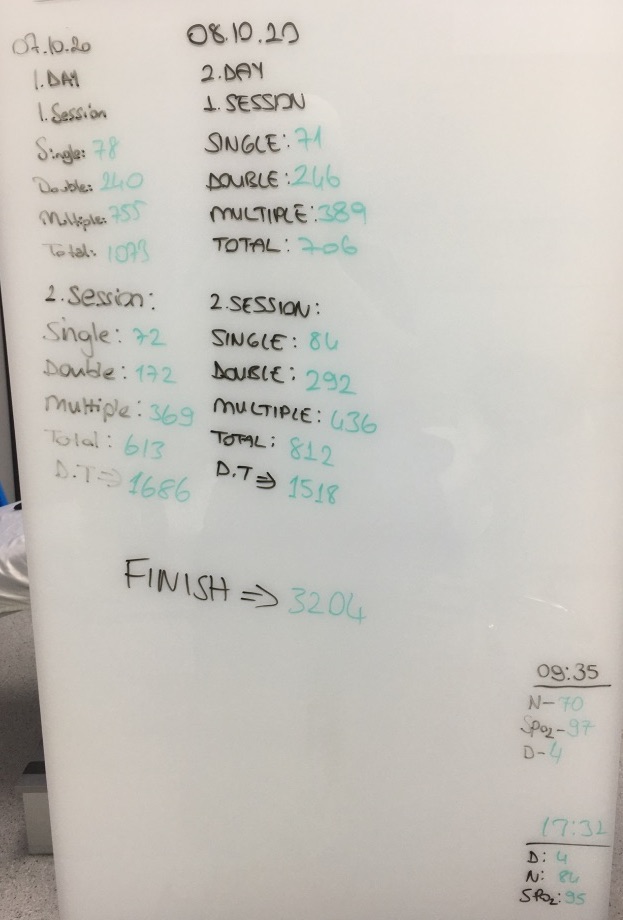 07.10.20
1.DAY
1.Session
Single: 78
Double: 240
Multiple: 755
Total: 1073
2.Session:
Single: 72
Double: 172
Multiple: 369
Total: 613
D.T⇒ 1686
08.10.20
2.DAY
1.SESSION
SINGLE: 71
DOUBLE: 246
MULTIPLE: 389
TOTAL: 706
2.SESSION:
SINGLE: 84
DOUBLE: 292
MULTIPLE: 436
TOTAL: 812
D.T⇒ 1518
FINISH ⇒ 3204
09:35
N-70
SpO2-97
D-4
17:32
D: 4
N: 84
SPO2: 95